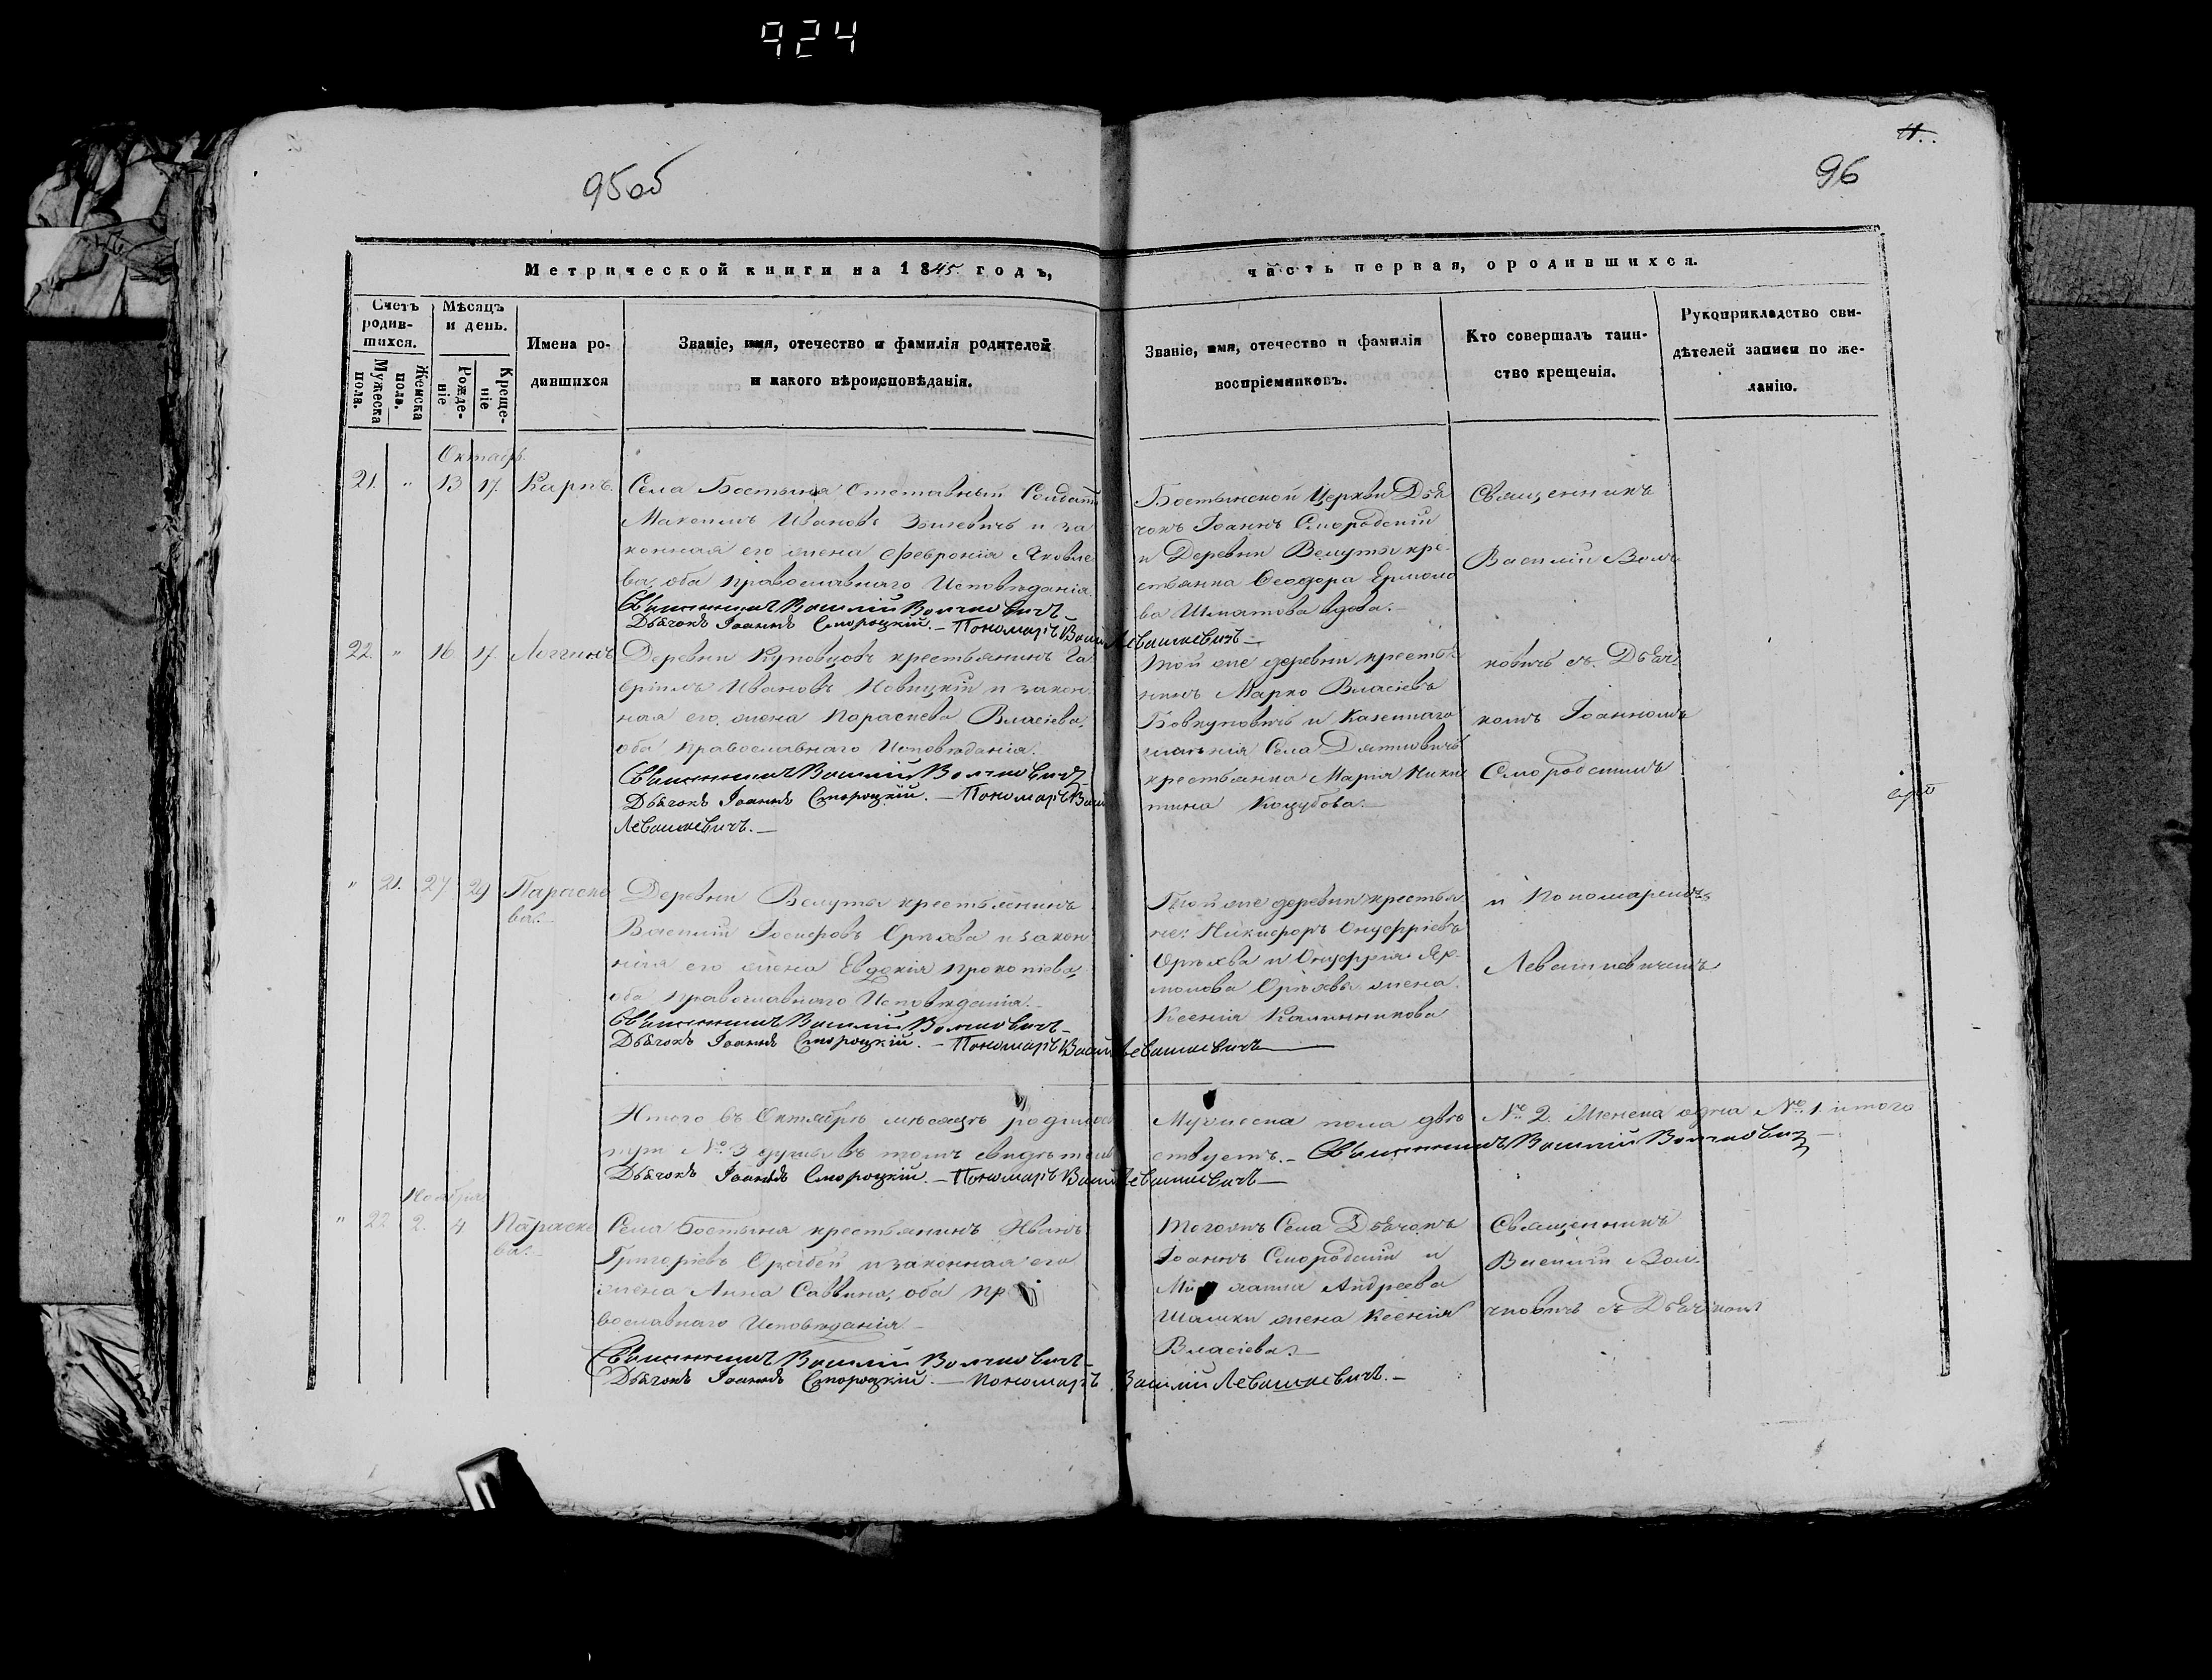 924
95об
96
11.
Метрической книги на 1845 годъ,
часть первая, ородившихся.
Счетъ родив-
шихся.
Мужеска пола.
Женска пола.
Мѣсяцъ и день.
Рожде-
ніе
Креще-
ніе
Имена ро-
дившихся
Званіе, имя, отечество и фамилія родителей
и какого вѣроисповѣданія.
Званіе, имя, отечество и фамилія
воспріемниковъ.
Кто совершалъ таин-
ство крещенія.
Рукоприкладство сви-
дѣтелей записи по же-
ланію.
Октябрь.
21. " 13 17. Карпъ.
Села Бостыня Отставный Солдатъ
Максимъ Ивановъ и за
конная его жена Феvронія Яковле
ва, оба Православнаго Исповѣданія.
Священникъ Василій Волчковичъ
Дьячокъ Іоаннъ Смородскій. — Пономарь Васил Левашкевичъ —
Бостынской Церкви Дья
чокъ Іоаннъ Смородскій
и Деревни Велуты кре-
стьянка Ѳеодора Ермола
ва Шматова вдова. —
Священникъ
Василій Волч
22. " 16. 17. Логгинъ
Деревни Куповцовъ крестьянинъ Га
вріилъ Ивановъ Новицкій и закон
ная его жена Параскева Власіева,
оба Православнаго Исповѣданія.
Священникъ Василій Волчковичъ
Дьячокъ Іоаннъ Смородскій. — Пономарь Васил
Левашкевичъ. —
Той же деревни кресть
нинъ Марко Власіевъ
Бовкуновичъ и Казеннаго
имѣнія Села Дятловичъ
крестьянка Марія Ники
тина Коцубова. —
ковичъ съ Дьяч
комъ Іоанномъ
Смородскимъ
" 21. 27 29 Параске
ва. —
Деревни Велуты крестьянинъ
Василій Іосифовъ Орѣхва и закон
ная его жена Евдокія Прокопіева,
оба Православнаго Исповѣданія. —
Священникъ Василій Волчковичъ —
Дьячокъ Іоаннъ Смородскій. — Пономарь Васил Левашкевичъ —
Той же деревни крестья
не: Никифоръ Онуфріевъ
Орѣхва и Онуфрія Яр-
молова Орѣхвы жена
Ксенія Калинникова
и Пономаремъ
Левашкевичемъ
Итого въ Октябрѣ мѣсяцѣ родилось Мужеска пола двѣ № 2. Женска одна № 1. итого
№ 3 душъ въ томъ свидѣтель ствуетъ. — Священникъ Василій Волчковичъ —
Дьячокъ Іоаннъ Смородскій. — Пономарь Васил Левашкевичъ —
Ноября
" 22 2. 4 Параске
ва. —
Села Бостыня крестьянинъ Иванъ
Григоріевъ и законная его
жена Анна Саввина, оба Пр
вославнаго Исповѣданія —
Священникъ Василій Волчковичъ —
Дьячокъ Іоаннъ Смородскій. — Пономарь Василій Левашкевичъ. —
Тогожъ Села Дьячокъ
Іоаннъ Смородскій и
Ми хаила Андреева
Шашки жена Ксенія
Власіева. —
Священникъ
Василій Вол
чковичъ съ Дьячкомъ